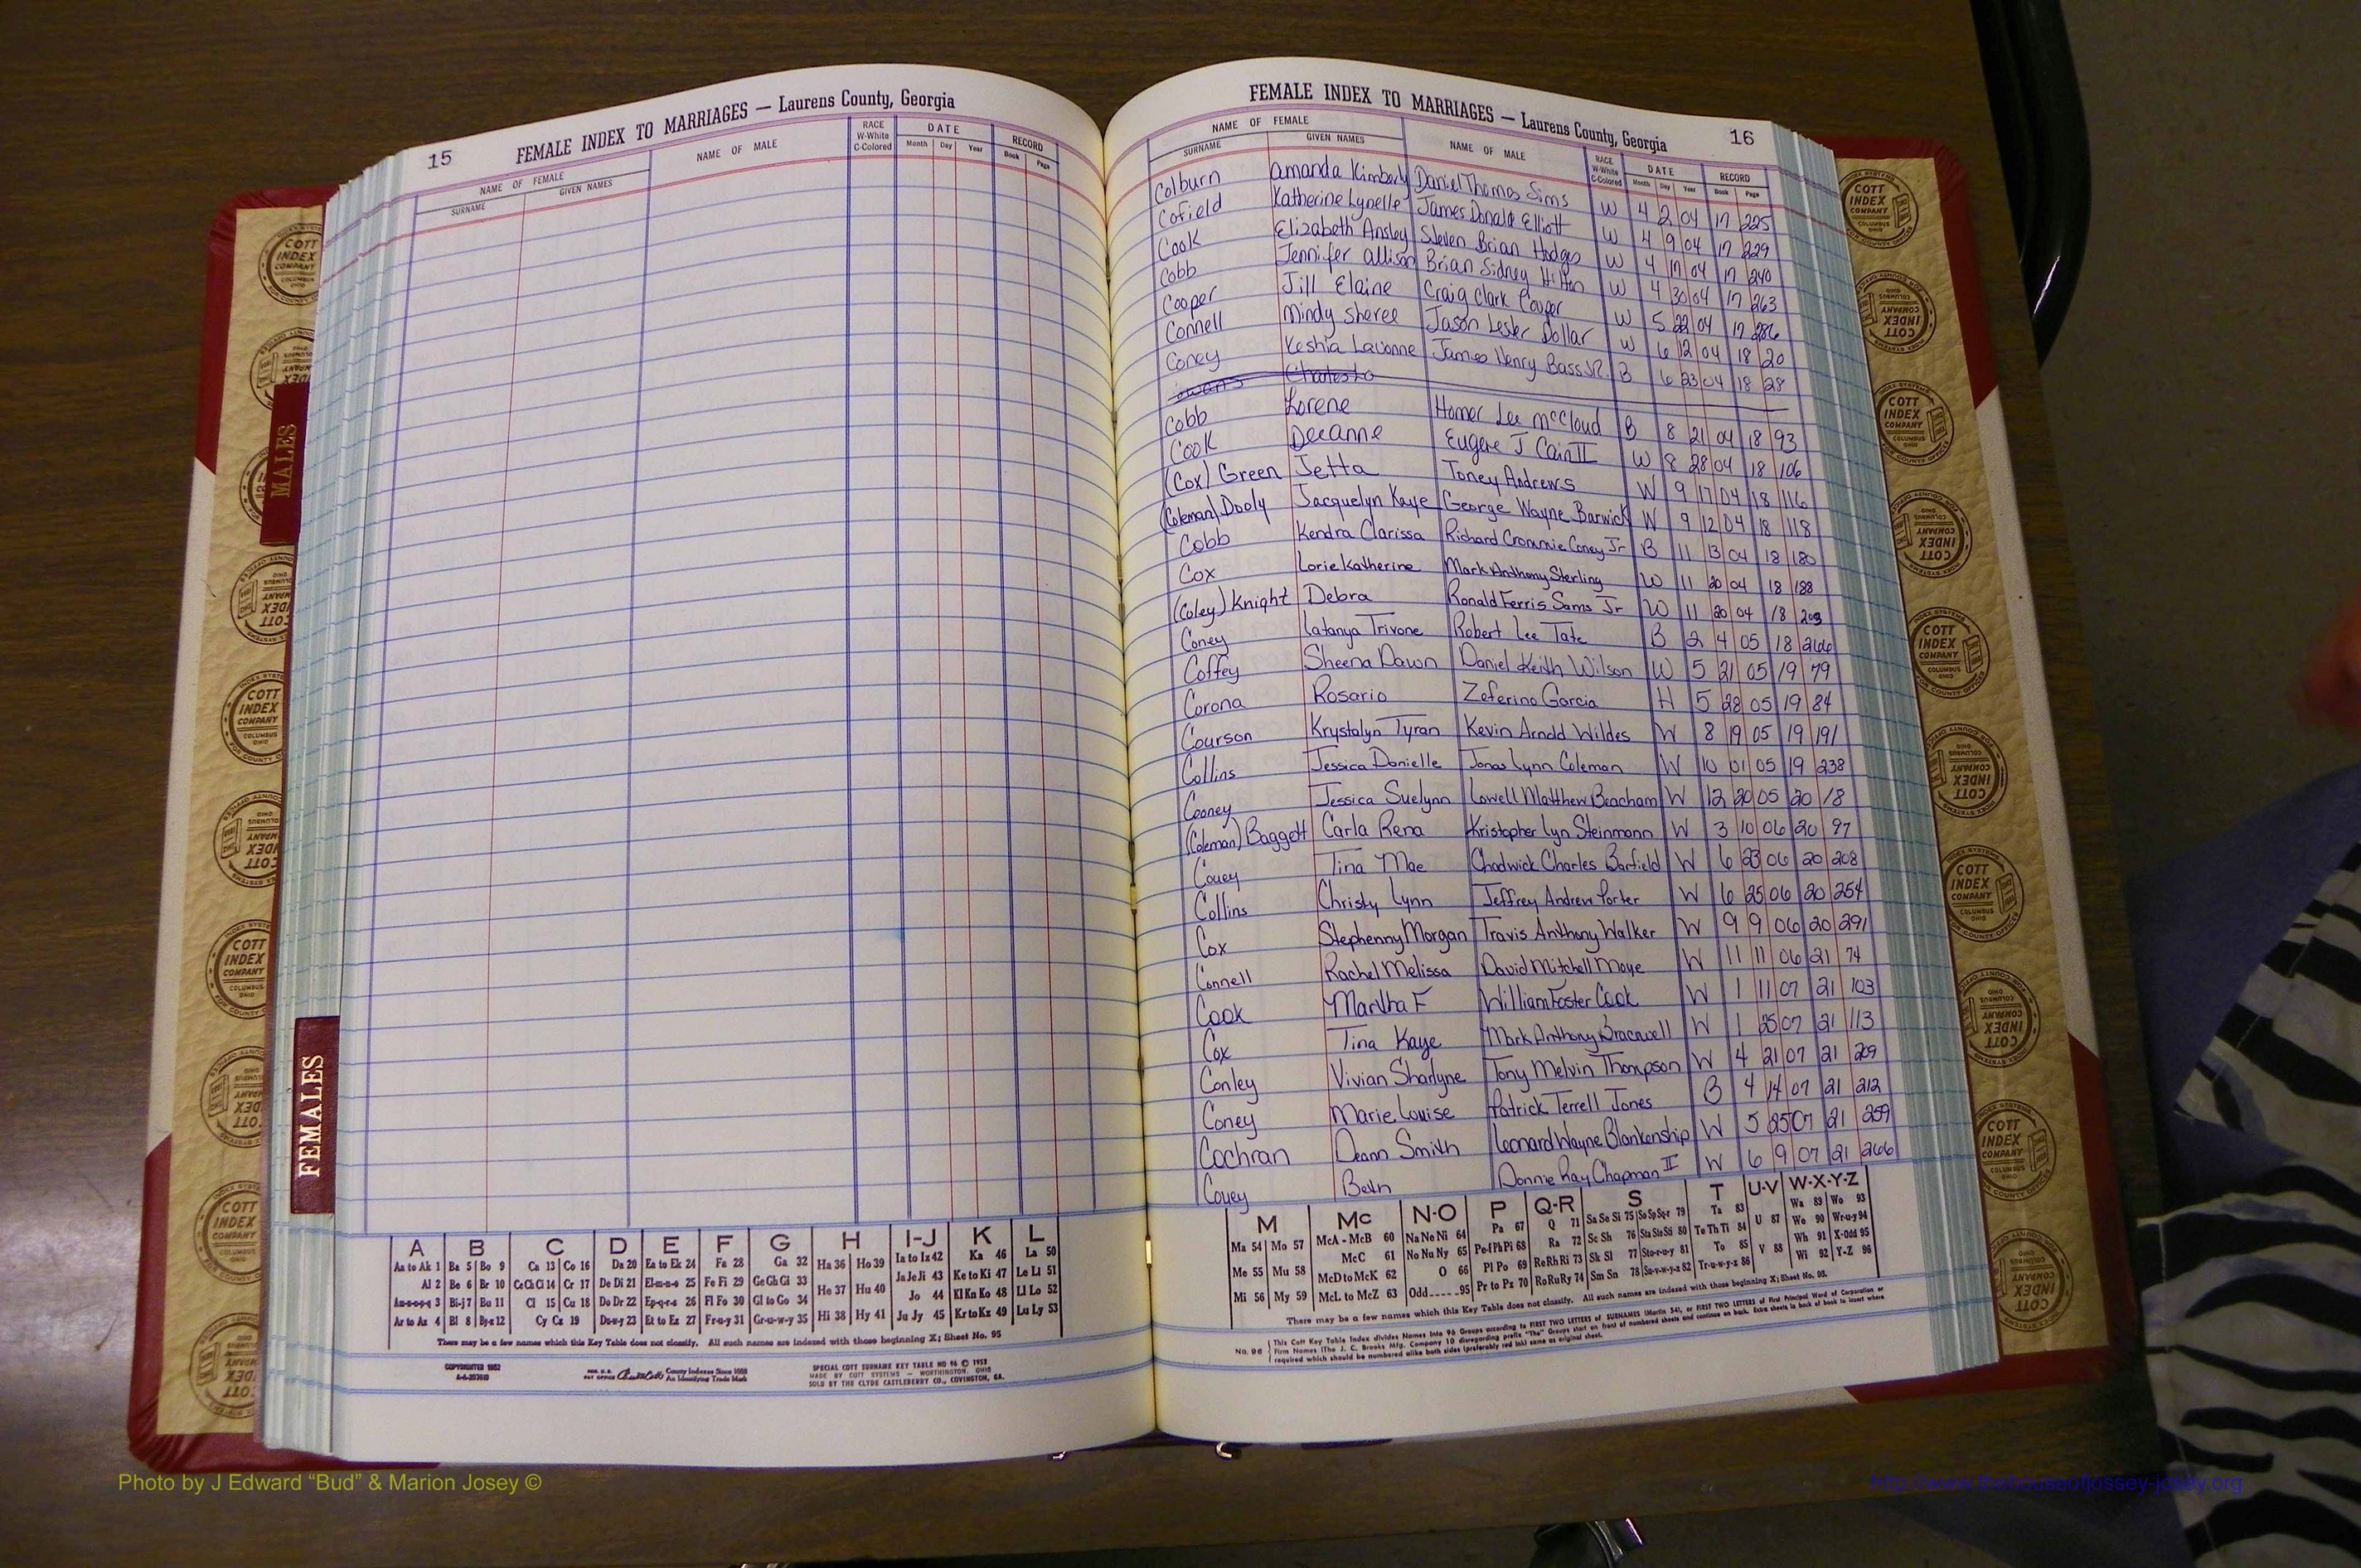 15 FEMALE INDEX TO MARRIAGES — Laurens County, Georgia
NAME OF FEMALE NAME OF MALE RACE W-White C-Colored DATE RECORD
SURNAME GIVEN NAMES Month Day Year Book Page
FEMALE INDEX TO MARRIAGES — Laurens County, Georgia 16
NAME OF FEMALE NAME OF MALE RACE W-White C-Colored DATE RECORD
SURNAME GIVEN NAMES Month Day Year Book Page
Colburn Amanda Kimberly Daniel Thomas Sims W 4 2 04 17 225
Cofield Katherine Lynelle James Donald Elliott W 4 9 04 17 229
Cook Elizabeth Ansley Steven Brian Hodges W 4 17 04 17 240
Cobb Jennifer Allison Brian Sidney Hilton W 4 30 04 17 263
Cooper Jill Elaine Craig Clark Cooper W 5 22 04 17 286
Connell Mindy Sheree Jason Lester Dollar W 6 12 04 18 20
Coney Keshia Lavonne James Henry Bass Jr. B 6 23 04 18 28
Owens
Cobb Lorene Homer Lee McCloud B 8 21 04 18 93
Cook Deeanne Eugene J Cain II W 8 28 04 18 106
(Cox) Green Jetta Toney Andrews W 9 17 04 18 116
(Coleman) Dooly Jacquelyn Kaye George Wayne Barwick W 9 12 04 18 118
Cobb Kendra Clarissa Richard Crommie Coney Jr B 11 13 04 18 180
Cox Lorie Katherine Mark Anthony Sterling W 11 20 04 18 188
(Coley) Knight Debra Ronald Ferris Sams Jr W 11 20 04 18 203
Coney Latanya Trivone Robert Lee Tate B 2 4 05 18 266
Coffey Sheena Dawn Daniel Keith Wilson W 5 21 05 19 79
Corona Rosario Zeferino Garcia H 5 28 05 19 84
Courson Krystalyn Tyran Kevin Arnold Wildes W 8 19 05 19 191
Collins Jessica Danielle Jonas Lynn Coleman W 10 01 05 19 238
Cooney Jessica Suelynn Lowell Matthew Beacham W 12 20 05 20 18
(Coleman) Baggett Carla Rena Kristopher Lyn Steinmann W 3 10 06 20 97
Couey Tina Mae Chadwick Charles Barfield W 6 23 06 20 208
Collins Christy Lynn Jeffrey Andrew Porter W 6 25 06 20 254
Cox Stephenny Morgan Travis Anthony Walker W 9 9 06 20 291
Connell Rachel Melissa David Mitchell Maye W 11 11 06 21 74
Cook Martha F William Foster Cook W 1 11 07 21 103
Cox Tina Kaye Mark Anthony Bracewell W 1 25 07 21 113
Conley Vivian Sharlyne Tony Melvin Thompson W 4 21 07 21 209
Coney Marie Louise Patrick Terrell Jones B 4 14 07 21 212
Cochran Deann Smith Leonard Wayne Blankenship W 5 25 07 21 259
Couey Beth Donnie Ray Chapman II W 6 9 07 21 266
MALES
FEMALES
A B C D E F G H I-J K L
Aa to Ak 1 Ba 5 Bo 9 Ca 13 Co 16 Da 20 Ea to Ek 24 Fa 28 Ga 32 Ha 36 Ho 39 Ia to Iz 42 Ka 46 La 50
Al 2 Be 6 Br 10 Ce Ch Ci 14 Cr 17 De Di 21 El-m-n-o 25 Fe Fi 29 Ge Gh Gi 33 He 37 Hu 40 Ja Je Ji 43 Ke to Ki 47 Le Li 51
An-n-o-p-q 3 Bi-j 7 Bu 11 Cl 15 Cu 18 Do Dr 22 Ep-q-r-s 26 Fl Fo 30 Gl to Go 34 Hi 38 Hy 41 Jo 44 Kl Kn Ko 48 Ll Lo 52
Ar to Az 4 Bl 8 By-z 12 Cy Cz 19 Du-w-y 23 Et to Ez 27 Fr-u-y 31 Gr-u-w-y 35 Ju Jy 45 Kr to Kz 49 Lu Ly 53
There may be a few names which this Key Table does not classify. All such names are indexed with those beginning X; Sheet No. 95
COPYRIGHTED 1952
County Indexes Since 1888
An Identifying Trade Mark
SPECIAL COTT SURNAME KEY TABLE NO 96 © 1953
MADE BY COTT SYSTEMS — WORTHINGTON, OHIO
SOLD BY THE CLYDE CASTLEBERRY CO., COVINGTON, GA.
M Mc N-O P Q-R S T U-V W-X-Y-Z
Ma 54 Mo 57 McA - McB 60 Na Ne Ni 64 Pa 67 Q 71 Sa Se Si 75 So Sp Sq-r 79 Ta 83 U 87 Wa 89 Wo 93
Me 55 Mu 58 McC 61 No Nu Ny 65 Pe-f Ph Pi 68 Ra 72 Sc Sh 76 Sta Ste Sti 80 Te Th Ti 84 V 88 We 90 Wr-u-y 94
Mi 56 My 59 McD to McK 62 O 66 Pl Po 69 Re Rh Ri 73 Sk Sl 77 Sto-r-u-y 81 To 85 Wh 91 X-Odd 95
McL to McZ 63 Odd.....95 Pr to Pz 70 Ro Ru Ry 74 Sm Sn 78 Su-v-w-y-z 82 Tr-u-w-y-z 86 Wi 92 Y-Z 96
There may be a few names which this Key Table does not classify. All such names are indexed with those beginning X; Sheet No. 95.
No. 96 This Cott Key Table Index divides Names into 96 Groups according to FIRST TWO LETTERS of SURNAMES (Martin 54), or FIRST TWO LETTERS of First Principal Word of Corporation or
Firm Names (The J. C. Brooks Mfg. Company 10 disregarding prefix "The" Groups start on front of numbered sheets and continue on back. Extra sheets in back of book to insert where
required which should be numbered alike both sides (preferably red ink) same as original sheet.
COTT INDEX COMPANY COLUMBUS OHIO
Photo by J Edward "Bud" & Marion Josey ©
http://www.thehouseofjossey-josey.org